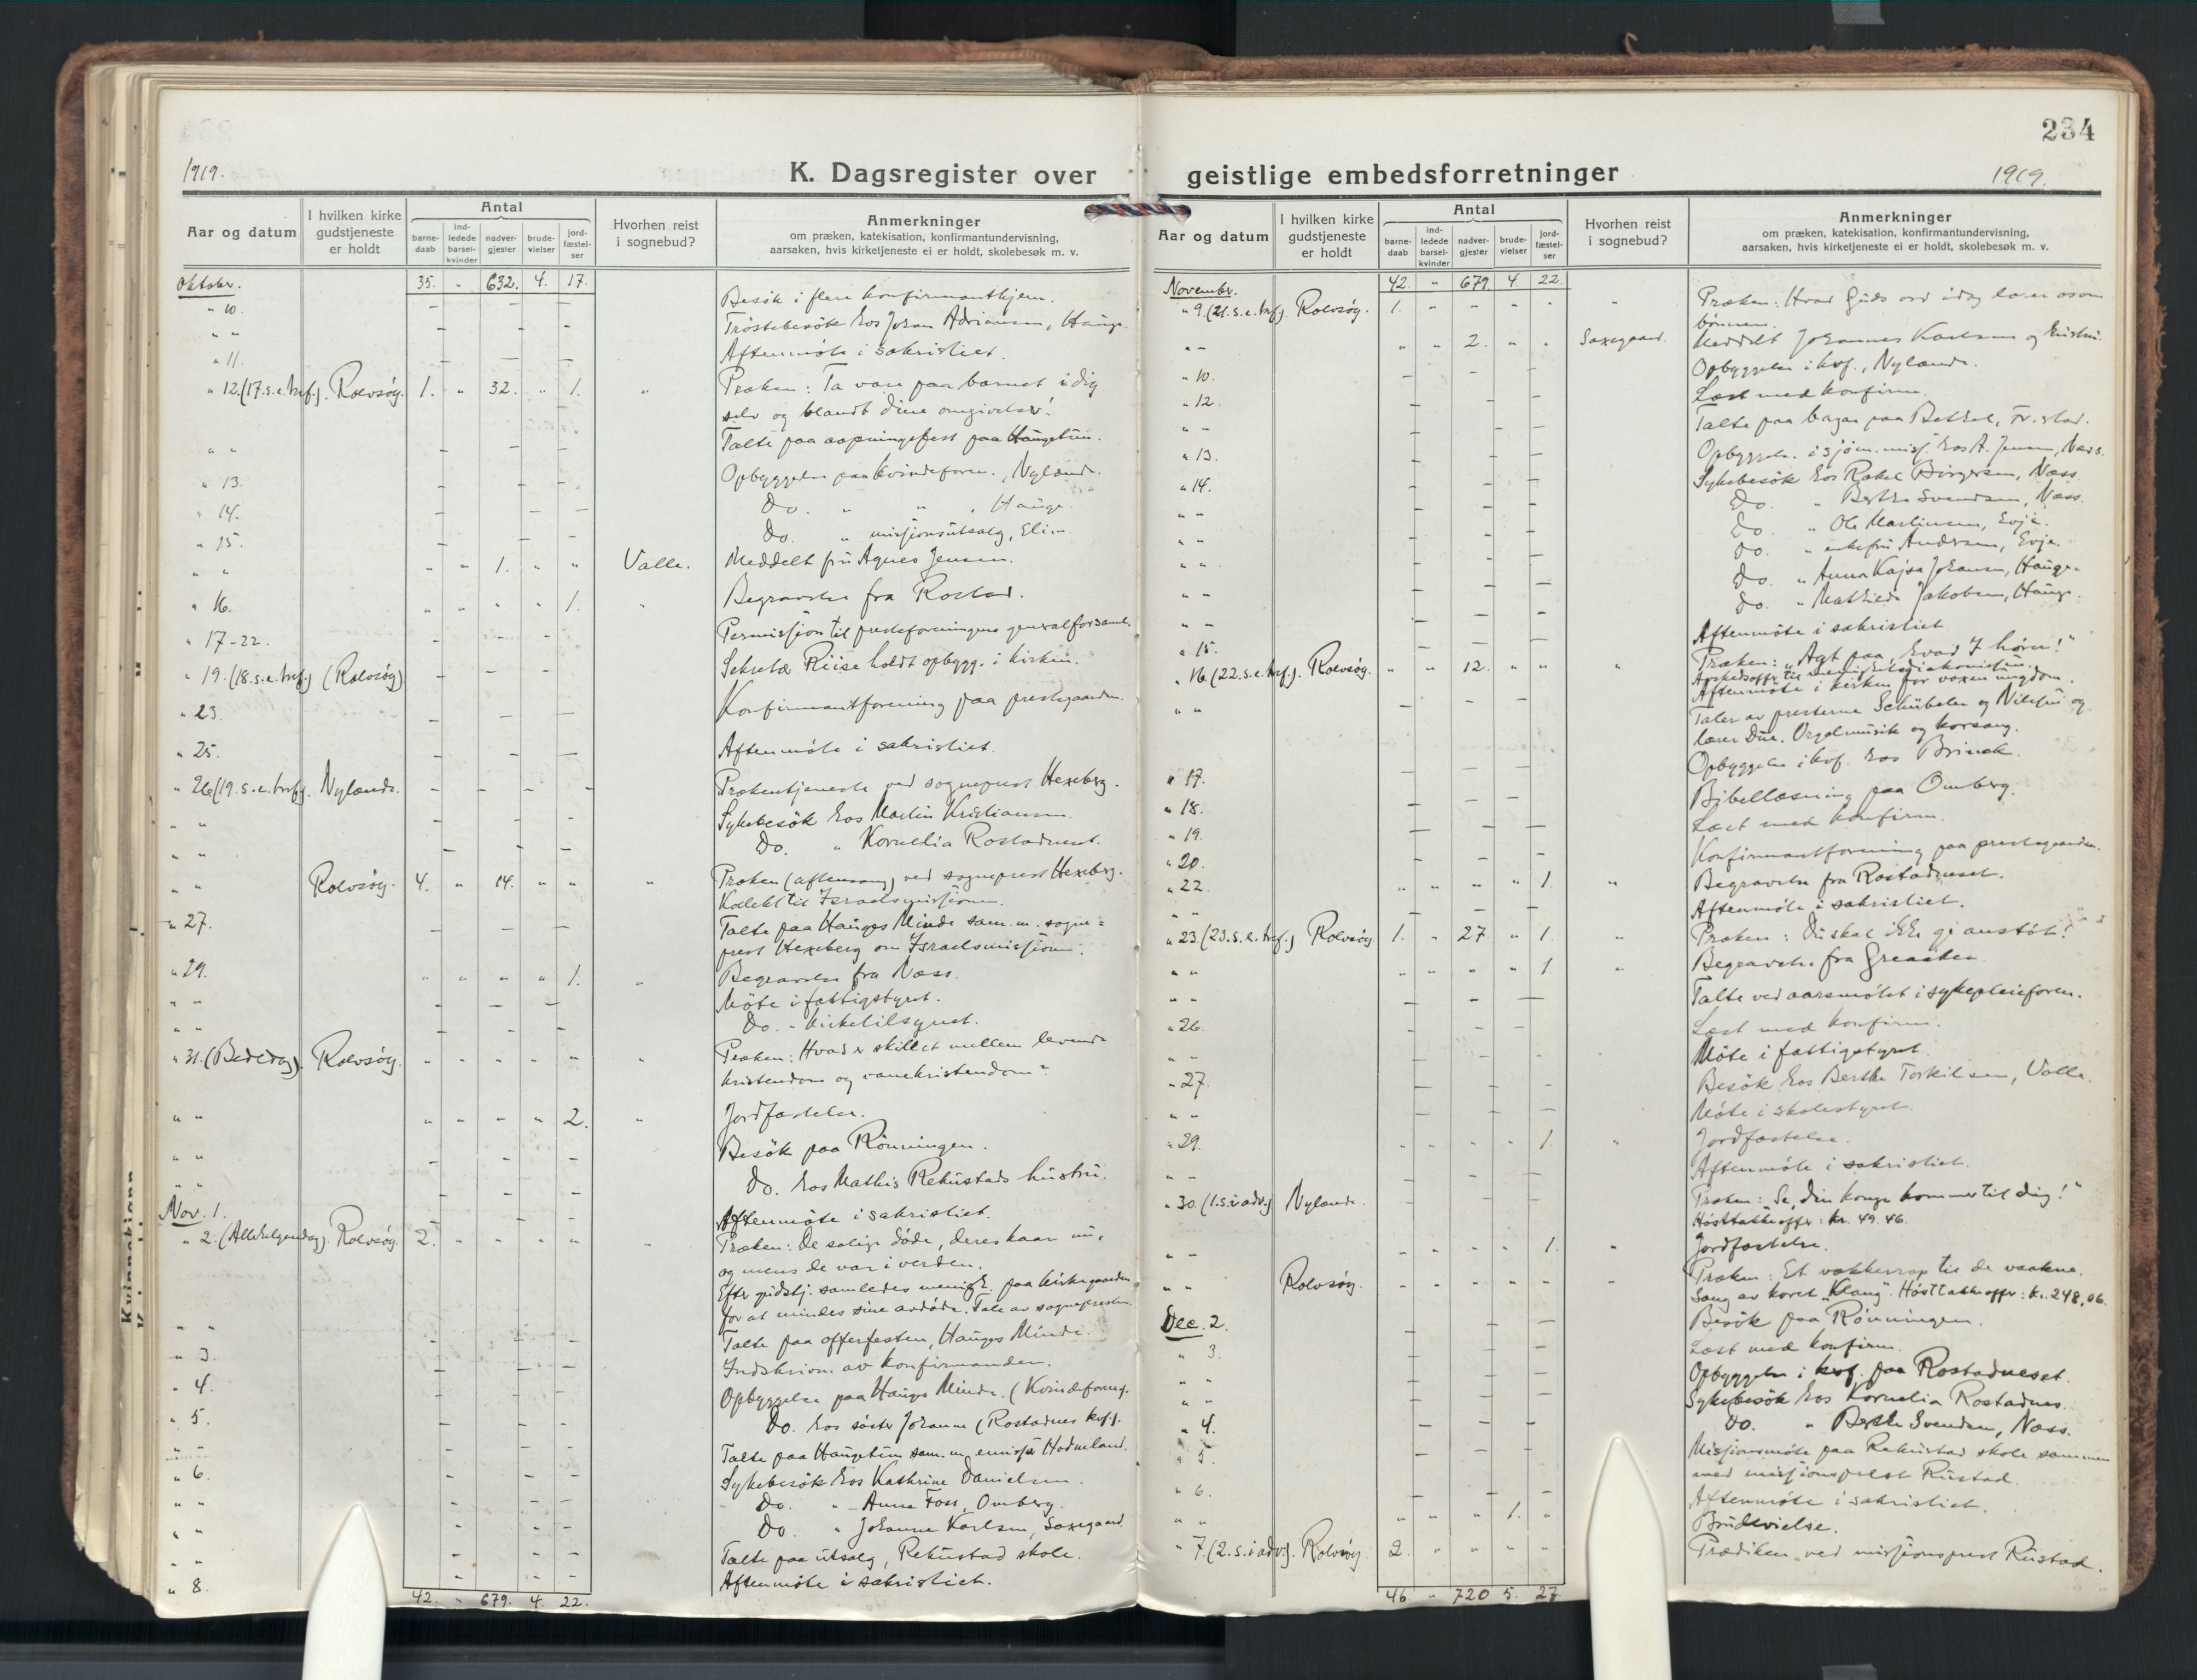 234
1919.
K. Dagsregister over
Aar og datum
I hvilken kirke gudstjeneste er holdt
Antal
barne-daab
ind-ledede barsel-kvinder
nadver-gjester
brude-vielser
jord-fæstel-ser
Hvorhen reist i sognebud?
Anmerkninger
om præken, katekisation, konfirmantundervisning,
aarsaken, hvis kirketjeneste ei er holdt, skolebesøk m. v.
Oktober. 35. " 632. 4. 17.
" 10. — — — Besök i flere konfirmanthjem.
" " — — — Tröstebesök hos Johan Adriansen, Hauge.
" 11. — — — Aftenmöte i sakristiet.
" 12. (17.s.e.tref.). Rolvsöy. 1. " 32. " 1. " Præken: Ta vare paa barnet i dig
selv og blandt dine omgivelser!
" " — — — Talte paa aapningsfest paa Haugetun.
" 13. — — — Opbyggelse paa kvindeforen., Nylænde.
" 14. — — — Do. " " , Hauge.
" 15. — — — Do. " misjonsutsalg, Elim.
" " " " 1. " " Valle. Meddelt fru Agnes Jensen.
" 16. " " " " 1. " Begravelse fra Rostad.
" 17-22. — — — Permisjon til presteforeningens generalforsaml.
" 19. (18.s.e.tref.) (Rolvsöy) — — — Sekretær Riise holdt opbygg. i kirken.
" 23. — — — Konfirmantforening paa prestegaarden.
" 25. — — — Aftenmöte i sakristiet.
" 26 (19.s.e.tref.). Nylænde. — — — Prækentjeneste ved sogneprest Hexeberg.
" " — — — Sykebesök hos Martin Kristiansen.
" " — — — Do. " Kornelia Rostadneset.
" " Rolvsöy. 4. " 14. " " " Præken (aftensang) ved sogneprest Hexeberg.
Kollekt til Israelsmissionen.
" 27. — — — Talte paa Hauges Minde sam. m. sogne=
prest Hexeberg om Israelsmissionen.
" 29. " " " " 1. " Begravelse fra Næss.
" " — — — Möte i fattigstyret.
" " — — — Do. " kirketilsynet.
" 31. (Bededag). Rolvsöy. " " " " " " Præken: Hvad er skillet mellem levende
kristendom og vanekristendom?
" " " " " " 2. " Jordfæstelse.
" " — — — Besök paa Rönningen.
" " — — — Do. hos Mathis Rekustads hustru.
Nov. 1. — — — Aftenmöte i sakristiet.
" 2. (Allehelgensdag). Rolvsöy. 2. " " " " " Præken: De salige döde, deres kaar nu,
og mens de var i verden.
Efter gudstj. samledes menigh. paa kirkegaarden
for at mindes sine avdöde. Tale av sognepresten.
" " — — — Talte paa offerfesten, Hauges Minde.
" 3. — — — Indskrivn. av konfirmanden.
" 4. — — — Opbyggelse paa Hauges Minde. (Kvindeforeng.
" 5. — — — Do. hos söster Johanne (Rostadnes kvf.).
" " — — — Talte paa Haugetun sam. m. emissær Hodneland.
" 6. — — — Sykebesök hos Kathrine Danielsen.
" " — — — Do. " Anna Foss, Omberg.
" " — — — Do. " Johanne Karlsen, Saxegaard.
" " — — — Talte paa utsalg, Rekustad skole.
" 8. — — — Aftenmöte i sakristiet.
42. " 679. 4. 22.
geistlige embedsforretninger
1919.
Aar og datum
I hvilken kirke gudstjeneste er holdt
Antal
barne-daab
ind-ledede barsel-kvinder
nadver-gjester
brude-vielser
jord-fæstel-ser
Hvorhen reist i sognebud?
Anmerkninger
om præken, katekisation, konfirmantundervisning,
aarsaken, hvis kirketjeneste ei er holdt, skolebesøk m. v.
November. 42. " 679. 4. 22.
" 9. (21.s.e.tref.). Rolvsöy. 1. " " " " " Præken: Hvad Guds ord idag lærer os om
bönnen.
" " " " 2. " " Saxegaard. Meddelt Johannes Karlsen og hustru.
" 10. — — — Opbyggelse i kvf., Nylænde.
" 12. — — — Læst med konfirm.
" " — — — Talte paa basar paa Betel, Fr.stad.
" 13. — — — Opbyggelse i sjöm.misj. hos A. Jensen, Næss.
" 14. — — — Sykebesök hos Rakel Birgersen, Næss.
" " — — — Do. " Berthe Svendsen, Næss.
" " — — — Do. " Ole Martinsen, Evje.
" " — — — Do. " enkefru Andersen, Evje.
" " — — — Do. " Anna Kajsa Johansen, Hauge.
" " — — — Do. " Mathilde Jakobsen, Hauge.
" 15. — — — Aftenmöte i sakristiet.
" 16. (22.s.e.tref.). Rolvsöy. " " 12. " " " Præken: "Agt paa, hvad I hörer!"
Avskedsoffer til menighetsdiakonissen.
" " — — — Aftenmöte i kirken for voxen ungdom.
Taler av presterne Schübeler og Nilssen og
lærer Due. Orgelmusik og korsang.
" 17. — — — Opbyggelse i kvf. hos Brinck.
" 18. — — — Bibellæsning paa Omberg.
" 19. — — — Læst med konfirm.
" 20. — — — Konfirmantforening paa prestegaarden.
" 22. " " " " 1. " Begravelse fra Rostadneset.
" " — — — Aftenmöte i sakristiet.
" 23. (23.s.e.tref.) Rolvsöy. 1. " 27. " 1. " Præken: Du skal ikke gi anstöt!
" " " " " " 1. " Begravelse fra Greaaker.
" " — — — Talte ved aarsmötet i sykepleieforen.
" 26. — — — Læst med konfirm.
" " — — — Möte i fattigstyret.
" 27. — — — Besök hos Berthe Torkilsen, Valle.
" " — — — Möte i skolestyret.
" 29. " " " " 1. " Jordfæstelse.
" " — — — Aftenmöte i sakristiet.
" 30. (1.s.i adv.) Nylænde — — — Præken: "Se, din konge kommer til dig!"
Hösttakkeoffer: kr. 49.46.
" " " " " " 1. " Jordfæstelse.
" " Rolvsöy. " " " " " " Præken: Et vækkerrop til de vaakne.
Sang av koret "Klang". Hösttakkeoffer: kr. 248,06.
Dec. 2. — — — Besök paa Rönningen.
" 3. — — — Læst med konfirm.
" " — — — Opbyggelse i kvf. paa Rostadneset.
" " — — — Sykebesök hos Kornelia Rostadnes.
" 4. — — — Do. " Berthe Svendsen, Næss.
" 5. — — — Misjonsmöte paa Rekustad skole sammen
med misjonsprest Rustad.
" 6. — — — Aftenmöte i sakristiet.
" " " " " 1. " Brudevielse.
" 7. (2.s.i adv.). Rolvsöy 2. " " " " Prædiken ved misjonsprest Rustad.
46. " 720 5. 27.